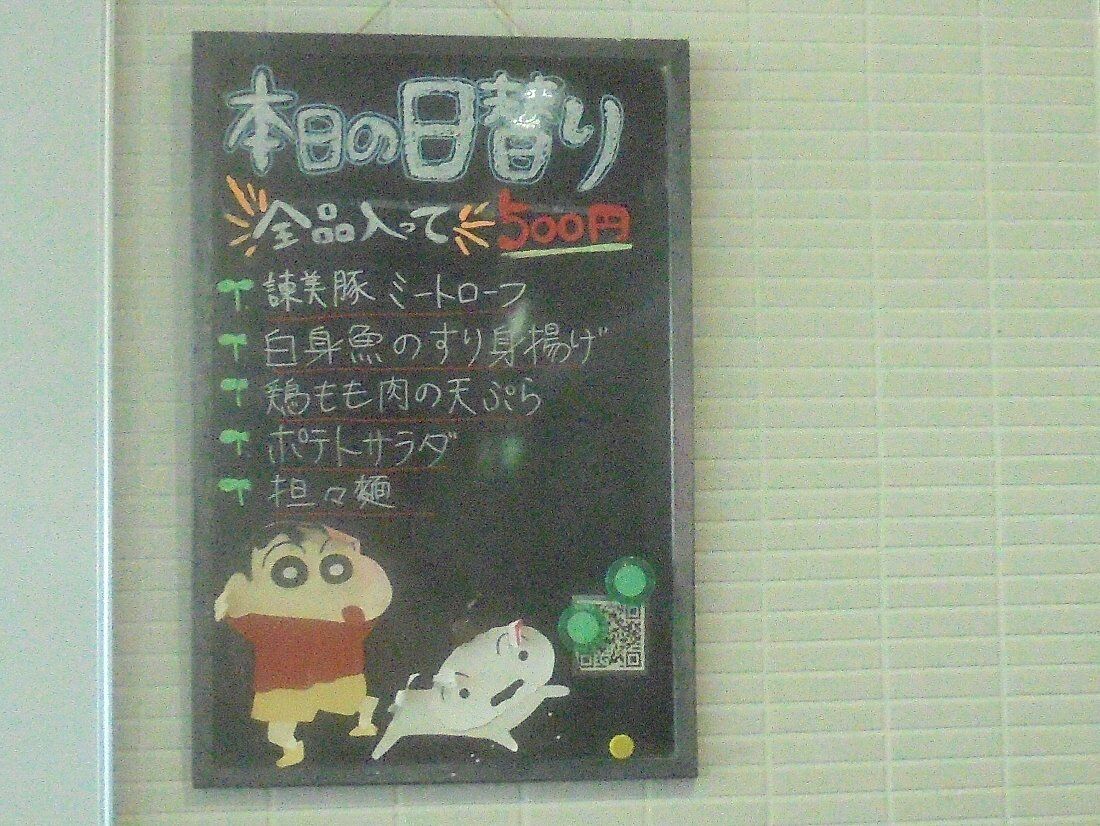 本日の日替り
全品入って 500円
諫美豚 ミートローフ
白身魚のすり身揚げ
鶏もも肉の天ぷら
ポテトサラダ
担々麺